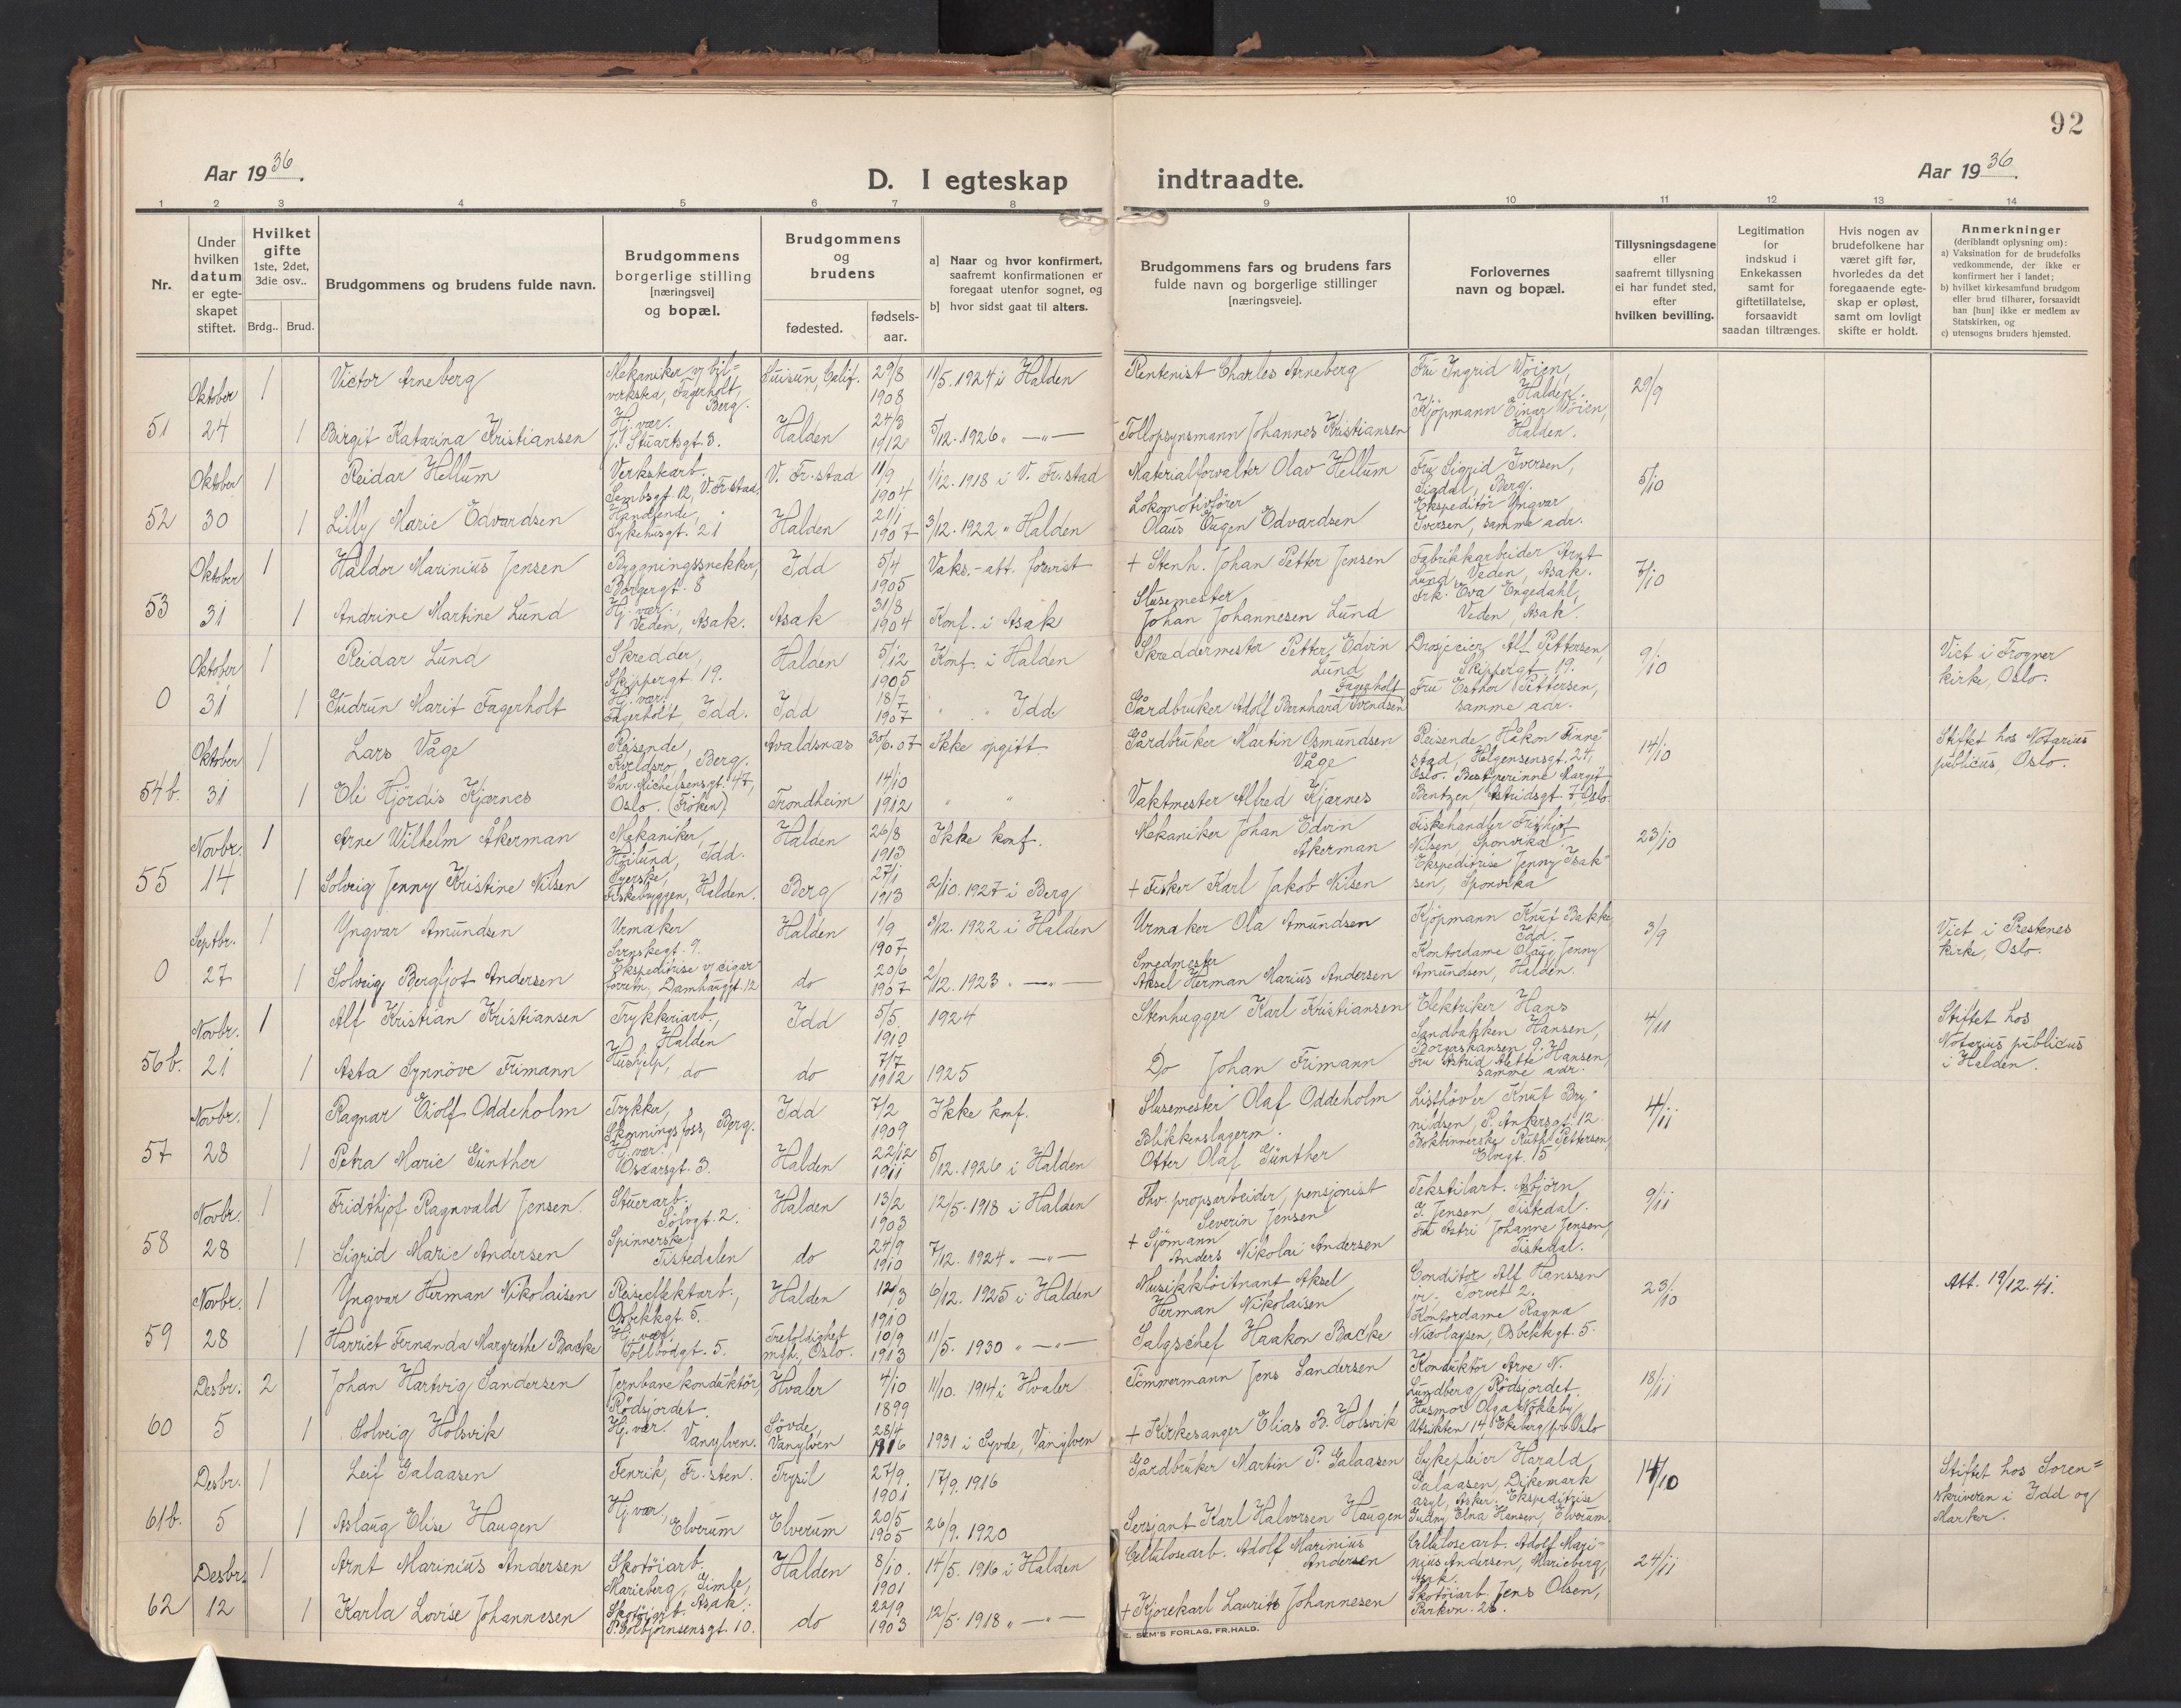 92
Aar 1936.
D. I egteskap indtraadte.
Aar 1936.
1 2 3 4 5 6 7 8 9 10 11 12 13 14
Nr.
Under hvilken datum er egte-skapet stiftet.
Hvilket gifte
1ste, 2det, 3die osv..
Brdg.. Brud.
Brudgommens og brudens fulde navn.
Brudgommens
borgerlige stilling
[næringsvei]
og bopæl.
Brudgommens
og
brudens
fødested.
fødsels-
aar.
a] Naar og hvor konfirmert,
saafremt konfirmationen er
foregaat utenfor sognet, og
b] hvor sidst gaat til alters.
Brudgommens fars og brudens fars
fulde navn og borgerlige stillinger
[næringsveie].
Forlovernes
navn og bopæl.
Tillysningsdagene
eller
saafremt tillysning
ei har fundet sted,
efter
hvilken bevilling.
Legitimation
for
indskud i
Enkekassen
samt for
giftetillatelse,
forsaavidt
saadan tiltrænges.
Hvis nogen av
brudefolkene har
været gift før,
hvorledes da det
foregaaende egte-
skap er opløst,
samt om lovligt
skifte er holdt.
Anmerkninger
(deriblandt oplysning om):
a) Vaksination for de brudefolks
vedkommende, der ikke er
konfirmert her i landet;
b) hvilket kirkesamfund brudgom
eller brud tilhører, forsaavidt
han [hun] ikke er medlem av
Statskirken, og
c) utensogns bruders hjemsted.
51 Oktober 24
1 Victor Arneberg
Mekaniker v/ bil-
verksta, Fagerholt,
Berg.
Suisun, Calif. 29/8 1908
11/5. 1924 i Halden
Rentenist Charles Arneberg
Fru Ingrid Wöien,
Halden.
Kjöpmann Einar Wöien,
Halden.
29/9
1 Birgit Katarina Kristiansen
Hj. vær.
J. Stuartsgt. 3.
Halden 24/3 1912
5/12. 1926 „ —„—
Tollopsynsmann Johannes Kristiansen
52 Oktober 30
1 Reidar Hellum
Verkstarb.
Sembsgt. 12, V. Fr.stad.
V. Fr.stad 11/9 1904
1/12. 1918 i V. Fr.stad
Materialforvalter Olav Hellum
Fru Sigrid Iversen,
Sigdal, Berg.
Ekspeditör Yngvar
Iversen, samme adr.
5/10
1 Lilly Marie Edvardsen
Handlende,
Sykehusgt. 21
Halden 21/1 1907
3/12. 1922 „ Halden
Lokomotivförer
Olaus Eugen Edvardsen
53 Oktober 31
1 Haldor Marinius Jensen
Byggningssnekker,
Borgergt. 8
Idd 5/4 1905
Vaks.-att. forevist
+ Stenh. Johan Petter Jensen
Fabrikkarbeider Arnt
Lund, Veden, Asak.
Frk. Eva Engedahl,
Veden, Asak.
7/10
1 Andrine Martine Lund
Hj. vær.
Veden, Asak.
Asak 31/8 1904
Konf. i Asak
Slusemester
Johan Johannesen Lund
0 Oktober 31
1 Reidar Lund
Skredder,
Skippergt. 19.
Halden 5/12 1905
Konf. i Halden
Skreddermester Petter Edvin
Lund
Drosjeeier Alf Pettersen,
Skippergt. 19.
Fru Esther Pettersen,
samme adr.
9/10
Viet i Frogner
kirke, Oslo.
1 Gudrun Marit Fagerholt
Hj. vær.
Fagerholt, Idd.
Idd 18/7 1907
„ „ Idd
Fagerholt
Gårdbruker Adolf Bernhard Svendsen
54b. Oktober 31
1 Lars Våge
Reisende,
Kveldsro, Berg.
Avaldsnæs 30/6. 07
Ikke opgitt
Gårdbruker Martin Osmundsen
Våge
Reisende Håkon Finne-
stad, Helgensensgt. 24,
Oslo. Bestyrerinne Margit
Bentzen, Astridsgt. 7, Oslo.
14/10
Stiftet hos Notarius
publicus, Oslo.
1 Eli Hjördis Kjærnes
Chr. Michelsensgt. 47,
Oslo. (Fröken)
Trondheim 14/10 1912
„ „
Vaktmester Alfred Kjærnes
55 Novbr. 14
1 Arne Wilhelm Åkerman
Mekaniker,
Höilund, Idd.
Halden 26/8 1913
Ikke konf.
Mekaniker Johan Edvin
Åkerman
Fiskehandler Frithjof
Nilsen, Sponvika.
Ekspeditrise Jenny Isak-
sen, Sponvika
23/10
1 Solveig Jenny Kristine Nilsen
Syerske,
Fiskebryggen, Halden.
Berg 27/1 1913
2/10. 1927 i Berg
+ Fisker Karl Jakob Nilsen
0 Septbr. 27
1 Yngvar Amundsen
Urmaker
Halden 1/9 1907
3/12. 1922 i Halden
Urmaker Ola Amundsen
Kjöpmann Knut Bakke,
Idd.
Kontordame Olaug Jenny
Amundsen, Halden.
3/9
Viet i Prestenes
kirke, Oslo.
1 Solveig Bergljot Andersen
Ekspeditrise v/ cigar
forretn. Damhauggt. 12
do 20/6 1907
2/12. 1923 „ —„—
Smedmester
Aksel Herman Marius Andersen
56b. Novbr. 21
1 Alf Kristian Kristiansen
Trykkeriarb.,
Halden
Idd 5/5 1910
1924
Stenhugger Karl Kristiansen
Elektriker Hans
Sandbakken Hansen,
Borgerskansen 9.
Fru Astrid Alette Hansen,
samme adr.
4/11
Stiftet hos
Notarius publicus
i Halden.
1 Asta Synnöve Frimann
Hushjelp,
do
do 7/7 1912
1925
Do Johan Frimann
57 Novbr. 28
1 Ragnar Eiolf Oddeholm
Trykker,
Skonningsfoss, Berg.
Idd 7/2 1909
Ikke konf.
Slusemester Olaf Oddeholm
Listhöver Knut Bry-
nildsen, P. Ankersgt. 12.
Bokbinnerske Ruth Pettersen,
Elvegt. 15
4/11
1 Petra Marie Günther
Hj. vær.
Oscarsgt. 3.
Halden 22/12 1911
5/12. 1926 i Halden
Blikkenslagerm.
Otter Olaf Günther
58 Novbr. 28
1 Fridthjof Ragnvald Jensen
Stuerarb.
Sölvgt. 2.
Halden 13/2 1903
12/5. 1918 i Halden
Fhv. propsarbeider, pensjonist
Severin Jensen
Tekstilarb. Asbjörn
J. Jensen, Tistedal.
Fru Astri Johanne Jensen,
Tistedal.
9/11
1 Sigrid Marie Andersen
Spinnerske
Tistedalen
do 24/9 1910
7/12. 1924 „ —„—
+ Sjömann
Anders Nikolai Andersen
59 Novbr. 28
1 Yngvar Herman Nikolaisen
Reiseeffektarb.,
Osbekkgt. 5.
Halden 12/3 1910
6/12. 1925 i Halden
Musikklöitnant Aksel
Herman Nikolaisen
Conditor Alf Hanssen
jr., Torvet 2.
Kontordame Ragna
Nicolaysen, Osbekkgt. 5.
23/10
Att. 19/12. 41.
1 Harriet Fernanda Margrethe Backe
Hj. vær.
Tollbodgt. 5.
Trefoldighet
mgh., Oslo. 10/9 1913
11/5. 1930 „ —„—
Salgschef Haakon Backe
60 Desbr. 5
2 Johan Hartvig Sandersen
Jernbanekonduktör,
Rödsjordet.
Hvaler 4/10 1899
11/10. 1914 i Hvaler
Tömmermann Jens Sandersen
Konduktör Arne N.
Lundberg, Rödsjordet.
Husmor Olga Nökleby,
Utsikten 14, Ekeberg pr. Oslo
18/11
1 Solveig Holsvik
Hj. vær.
Vanylven.
Sövde,
Vanylven 28/4 1916
1931 i Syvde, Vanylven
+ Kirkesanger Elias B. Holsvik
61b. Desbr. 5
1 Leif Galaasen
Fenrik, Fr.sten.
Trysil 27/9 1901
17/9. 1916
Gårdbruker Martin P. Galaasen
Sykepleier Harald
Galaasen, Dikemark
asyl, Asker. Ekspeditrise
Gudny Elna Hansen, Elverum.
14/10
Stiftet hos Soren-
skriveren i Idd og
Marker.
1 Aslaug Elise Haugen
Hj. vær,
Elverum
Elverum 20/5 1905
26/9. 1920
Sersjant Karl Halvorsen Haugen
62 Desbr. 12
1 Arnt Marinius Andersen
Skotöiarb.
Marieberg, Gimle,
Asak.
Halden 8/10. 1901
14/5. 1916 i Halden
Cellulosearb. Adolf Marinius
Andersen
Cellulosearb. Adolf Mari-
nius Andersen, Marieberg,
Asak.
Skotöiarb. Jens Olsen,
Parkvn. 26.
24/11
1 Karla Lovise Johannesen
Skotöiarb.
P. Colbjörnsensgt. 10.
do 22/9 1903
12/5. 1918 „ —„—
+ Kjörekarl Laurits Johannesen
E. SEM'S FORLAG, FR.HALD.